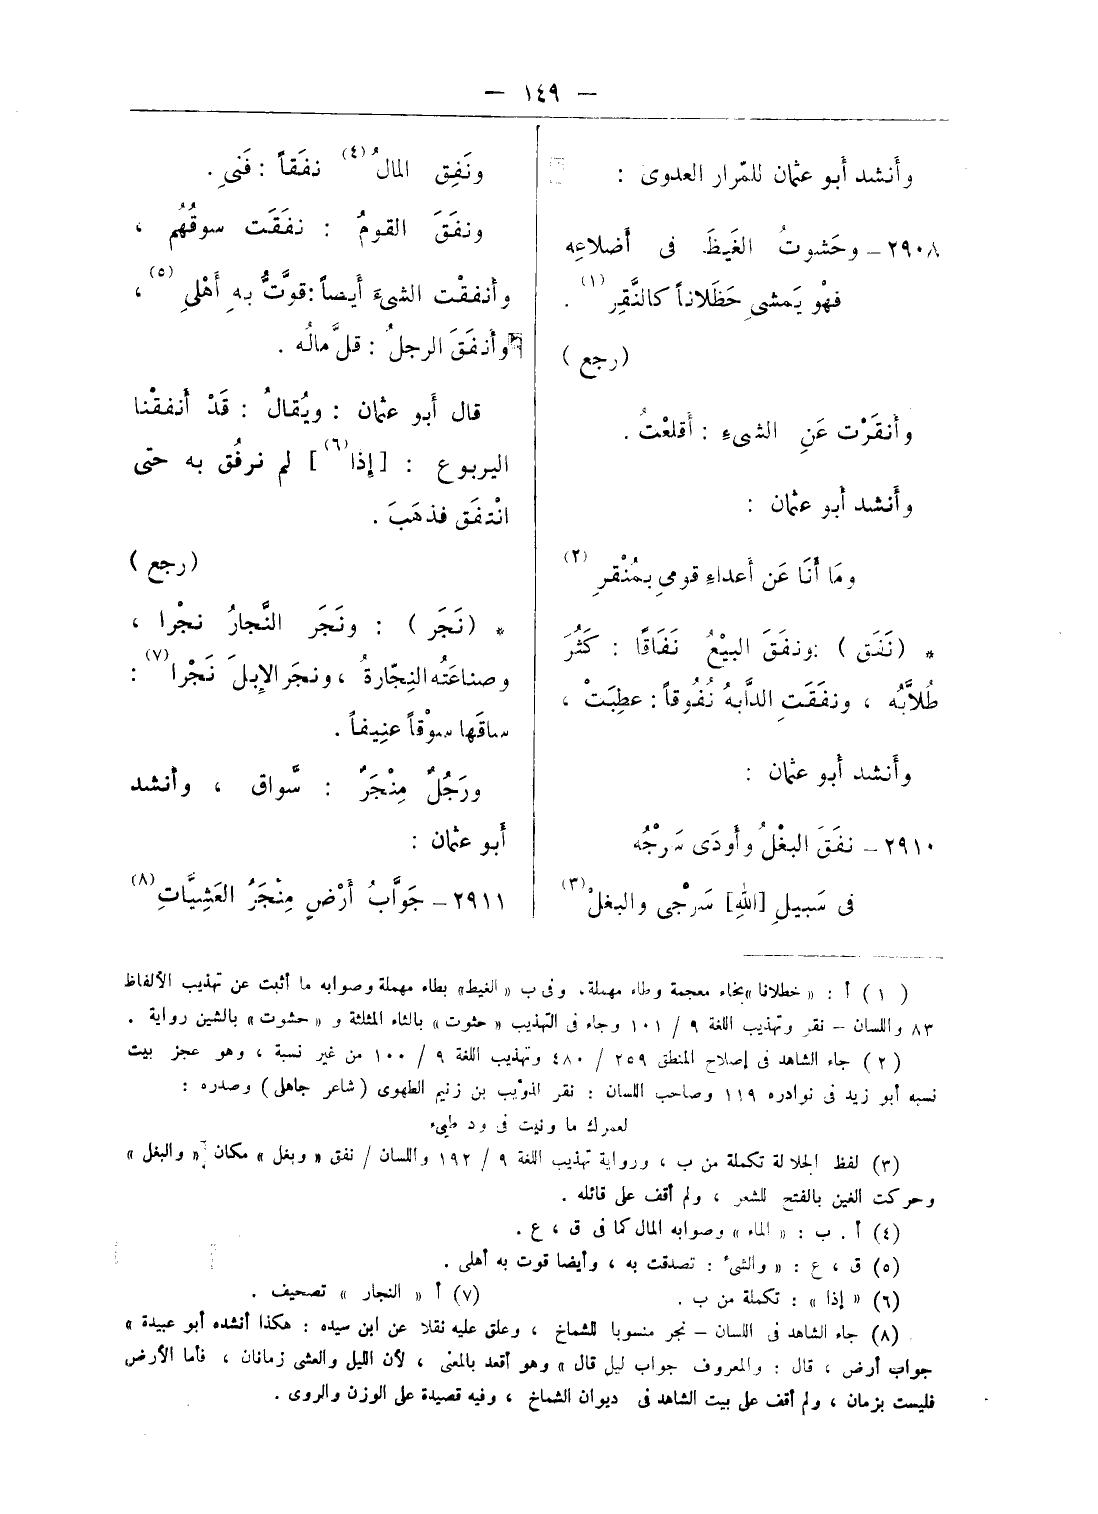 — ١٤٩ —
وأَنشد أَبو عثمان للمّرار العدوى :
٢٩٠٨ – وحَشوتُ الغَيظَ فى أَضلاعِه
فهْو يَمشىِ حَظَلاناً كالنَّقِر (١) .
(رجع)
وأَنقَرْت عَنِ الشىءِ : أَقلعْتُ .
وأَنشد أَبو عثمان :
ومَا أَنَا عَن أَعداءِ قومىِ بمُنْقرِ (٢)
* (نَفَق) : ونفَقَ البيْعُ نَفَاقًا : كَثُرَ
طُلاَّبُه ، ونفَقَتِ الدَّابهُ نُفُوقاً : عطِبَتْ ،
وأَنشد أَبو عثمان :
٢٩١٠ – نفَقَ البغْلُ وأَودَى سَرْجُه
فى سَبيلِ [اللهِ] سَرْجى والبغلْ (٣)
ونَفِق المالُ (٤) نفَقاً : فَنىِ .
ونفَقَ القومُ : نفَقَت سوقُهُم ،
وأَنفقْت الشىءَ أَيضاً : قوَّتُّ بهِ أَهْلىِ (٥) ،
وأَنفَقَ الرجلُ : قلَّ مالُه .
قال أَبو عثمان : ويُقالُ : قَدْ أَنفقْنا
اليربوع : [إذا (٦)] لم نرفُق به حتى
انْتفَق فذهَبَ .
(رجع)
* (نَجَر) : ونَجَر النَّجارُ نجْرا ،
وصناعَتُه النِجّارةُ ، ونجَر الإبلَ نَجْرا (٧) :
ساقَها سوْقاً عنِيفاً .
ورَجُلٌ مِنْجَرٌ : سَّواق ، وأَنشد
أَبو عثمان :
٢٩١١ – جَوَّابُ أَرْضٍ مِنْجَرُ العَشِيَّاتِ (٨)
(١) أ : « خطلانا » بخاء معجمة وطاء مهملة . وفى ب « الغيط » بطاء مهملة وصوابه ما أثبت عن تهذيب الألفاظ
٨٣ واللسان – نقر وتهذيب اللغة ٩ / ١٠١ وجاء فى التهذيب « حثوت » بالثاء المثلثة و « حشوت » بالشين رواية .
(٢) جاء الشاهد فى إصلاح المنطق ٢٥٩ / ٤٨٠ وتهذيب اللغة ٩ / ١٠٠ من غير نسبة ، وهو عجز بيت
نسبه أبو زيد فى نوادره ١١٩ وصاحب اللسان : نقر الذؤيب بن زنيم الطهوى (شاعر جاهلى) وصدره :
لعمرك ما ونيت فى ود طيىء
(٣) لفظ الجلالة تكملة من ب ، ورواية تهذيب اللغة ٩ / ١٩٢ واللسان / نفق « وبغل » مكان « والبغل »
وحركت الغين بالفتح للشعر ، ولم أقف على قائله .
(٤) أ . ب : « الماء » وصوابه المال كما فى ق ، ع .
(٥) ق ، ع : « والشىء : تصدقت به ، وأيضا قوت به أهلى .
(٦) « إذا » : تكملة من ب . (٧) أ « النجار » تصحيف .
(٨) جاء الشاهد فى اللسان – نجر منسوبا للشماخ ، وعلق عليه نقلا عن ابن سيده : هكذا أنشده أبو عبيدة «
جواب أرض ، قال : والمعروف جواب ليل قال » وهو أقعد بالمعنى ، لأن الليل والعشى زمانان ، فأما الأرض
فليست بزمان ، ولم أقف على بيت الشاهد فى ديوان الشماخ ، وفيه قصيدة على الوزن والروى .